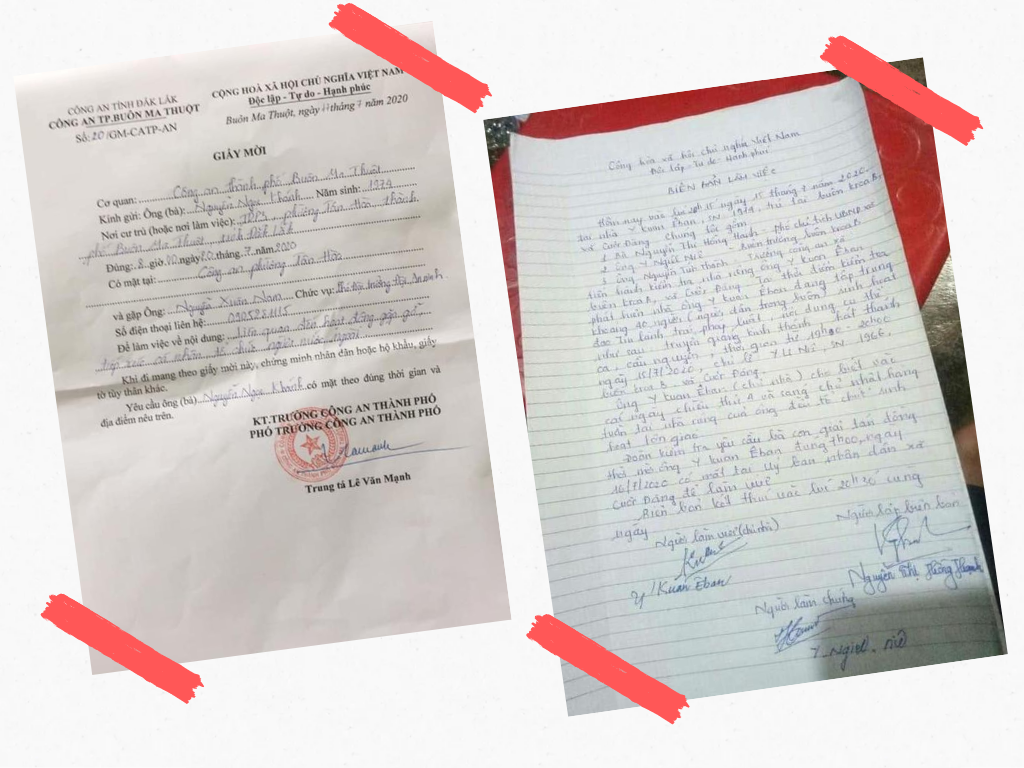 CÔNG AN TỈNH ĐẮK LẮK
CÔNG AN TP.BUÔN MA THUỘT
Số: 20 /GM-CATP-AN
CỘNG HOÀ XÃ HỘI CHỦ NGHĨA VIỆT NAM
Độc lập - Tự do - Hạnh phúc
Buôn Ma Thuột, ngày 17 tháng 7 năm 2020
GIẤY MỜI
Cơ quan: Công an thành phố Buôn Ma Thuột
Kính gửi: Ông (bà): Nguyễn Ngọc Khánh Năm sinh: 1974
Nơi cư trú (hoặc nơi làm việc): phường Tân Hòa, thành
phố Buôn Ma Thuột, tỉnh Đắk Lắk
Đúng: 8 giờ 00 ngày 20 tháng 7 năm 2020
Có mặt tại: Công an phường Tân Hòa
và gặp Ông: Nguyễn Xuân Nam Chức vụ: Phó Đội trưởng Đội An ninh
Số điện thoại liên hệ: 0905281115
Để làm việc về nội dung: Liên quan đến hoạt động gặp gỡ,
tiếp xúc cá nhân, tổ chức người nước ngoài
Khi đi mang theo giấy mời này, chứng minh nhân dân hoặc hộ khẩu, giấy
tờ tùy thân khác.
Yêu cầu ông (bà) Nguyễn Ngọc Khánh có mặt theo đúng thời gian và
địa điểm nêu trên.
KT.TRƯỞNG CÔNG AN THÀNH PHỐ
PHÓ TRƯỞNG CÔNG AN THÀNH PHỐ
Trung tá Lê Văn Mạnh
Cộng hòa xã hội chủ nghĩa Việt Nam
Độc lập - Tự do - Hạnh phúc
BIÊN BẢN LÀM VIỆC
Hôm nay vào lúc 15 ngày 15 tháng 7 năm 2020.
tại nhà Y Kuan Êban, SN 1979, trú tại buôn KroaB,
xã Cuôr Đăng. chúng tôi gồm
1 Bà Nguyễn Thị Hồng Hạnh - phó chủ tịch UBND xã
2 ông Y Ngiel Niê - buôn trưởng buôn KroaB
3 ông Nguyễn Tuấn Thành - Trưởng công an xã
tiến hành kiểm tra nhà riêng ông Y Kuan Êban,
buôn KroaB, xã Cuôr Đăng. Tại thời điểm kiểm tra
phát hiện nhà ông Y Kuan Êban đang tập trung
khoảng 40 người (người dân trong buôn) sinh hoạt
đạo Tin lành trái pháp luật, nội dung cụ thể
như sau: truyền giảng kinh thánh, hát thánh
ca, cầu nguyện, thời gian từ 19h30 - 20h00
ngày 15/7/2020, chủ lễ Y Li Niê, SN 1966,
buôn KroaB xã Cuôr Đăng.
Ông Y Kuan Êban (chủ nhà) cho biết vào
các ngày chiều thứ 4 và sáng chủ nhật hàng
tuần tại nhà riêng của ông đều tổ chức sinh
hoạt tôn giáo.
Đoàn kiểm tra yêu cầu bà con giải tán đồng
thời mời ông Y Kuan Êban đúng 7h00, ngày
16/7/2020 có mặt tại Uỷ ban nhân dân xã
Cuôr Đăng để làm việc
Biên bản kết thúc vào lúc 20h30 cùng
ngày
Người làm việc (chủ nhà)
Người lập biên bản
Y Kuan Êban
Nguyễn Thị Hồng Hạnh
Người làm chứng
Y Ngiel Niê